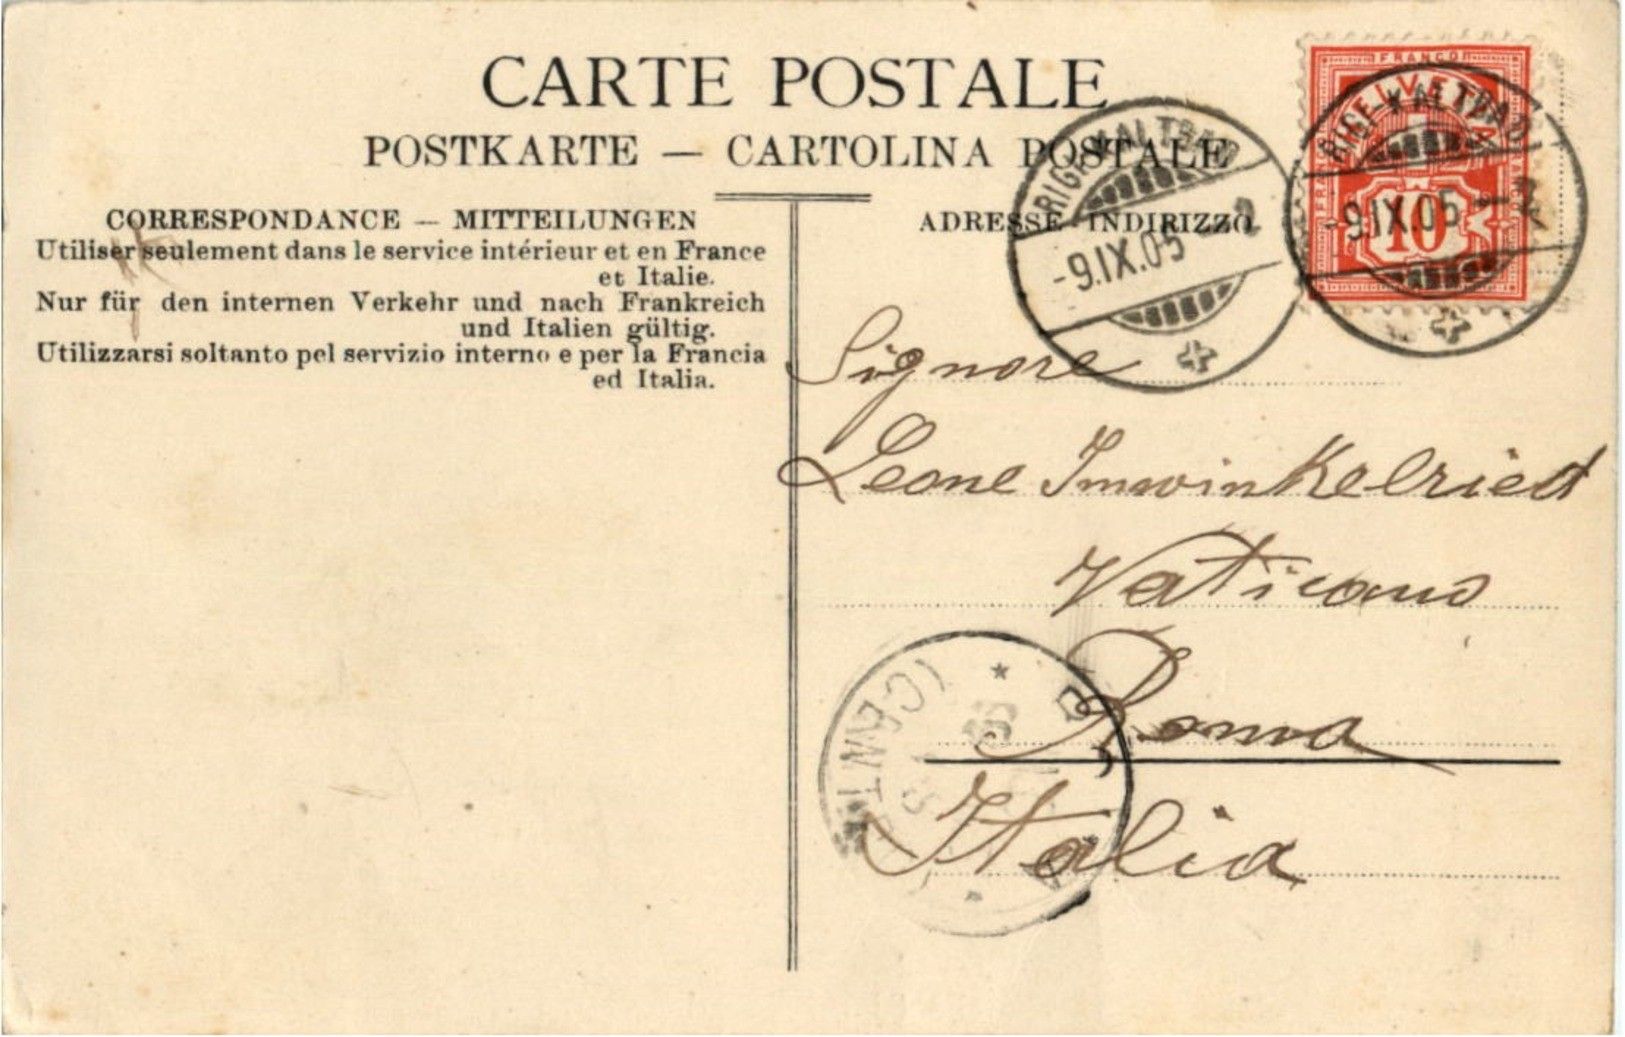 CARTE POSTALE
POSTKARTE — CARTOLINA POSTALE
CORRESPONDANCE — MITTEILUNGEN
Utiliser seulement dans le service intérieur et en France
et Italie.
Nur für den internen Verkehr und nach Frankreich
und Italien gültig.
Utilizzarsi soltanto pel servizio interno e per la Francia
ed Italia.
ADRESSE INDIRIZZO
RIGI-KALTBAD
-9.IX.05-2
FRANCO
HELVETIA
10
RIGI-KALTBAD
-9.IX.05-2
Signore
Leone Imwinkelried
Vaticano
Roma
Italia